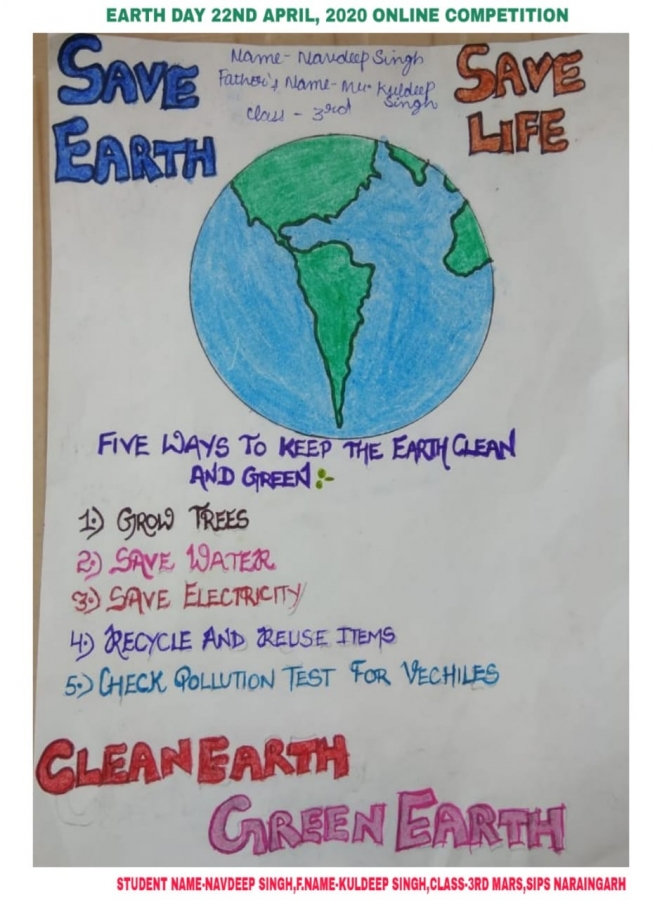 EARTH DAY 22ND APRIL, 2020 ONLINE COMPETITION
SAVE
EARTH
Name- Navdeep Singh
Father's Name- Mr. Kuldeep
Singh
Class - 3rd
SAVE
LIFE
FIVE WAYS TO KEEP THE EARTH CLEAN
AND GREEN :-
1.) GROW TREES
2.) SAVE WATER
3.) SAVE ELECTRICITY
4.) RECYCLE AND REUSE ITEMS
5.) CHECK POLLUTION TEST FOR VECHILES
CLEAN EARTH
GREEN EARTH
STUDENT NAME-NAVDEEP SINGH,F.NAME-KULDEEP SINGH,CLASS-3RD MARS,SIPS NARAINGARH